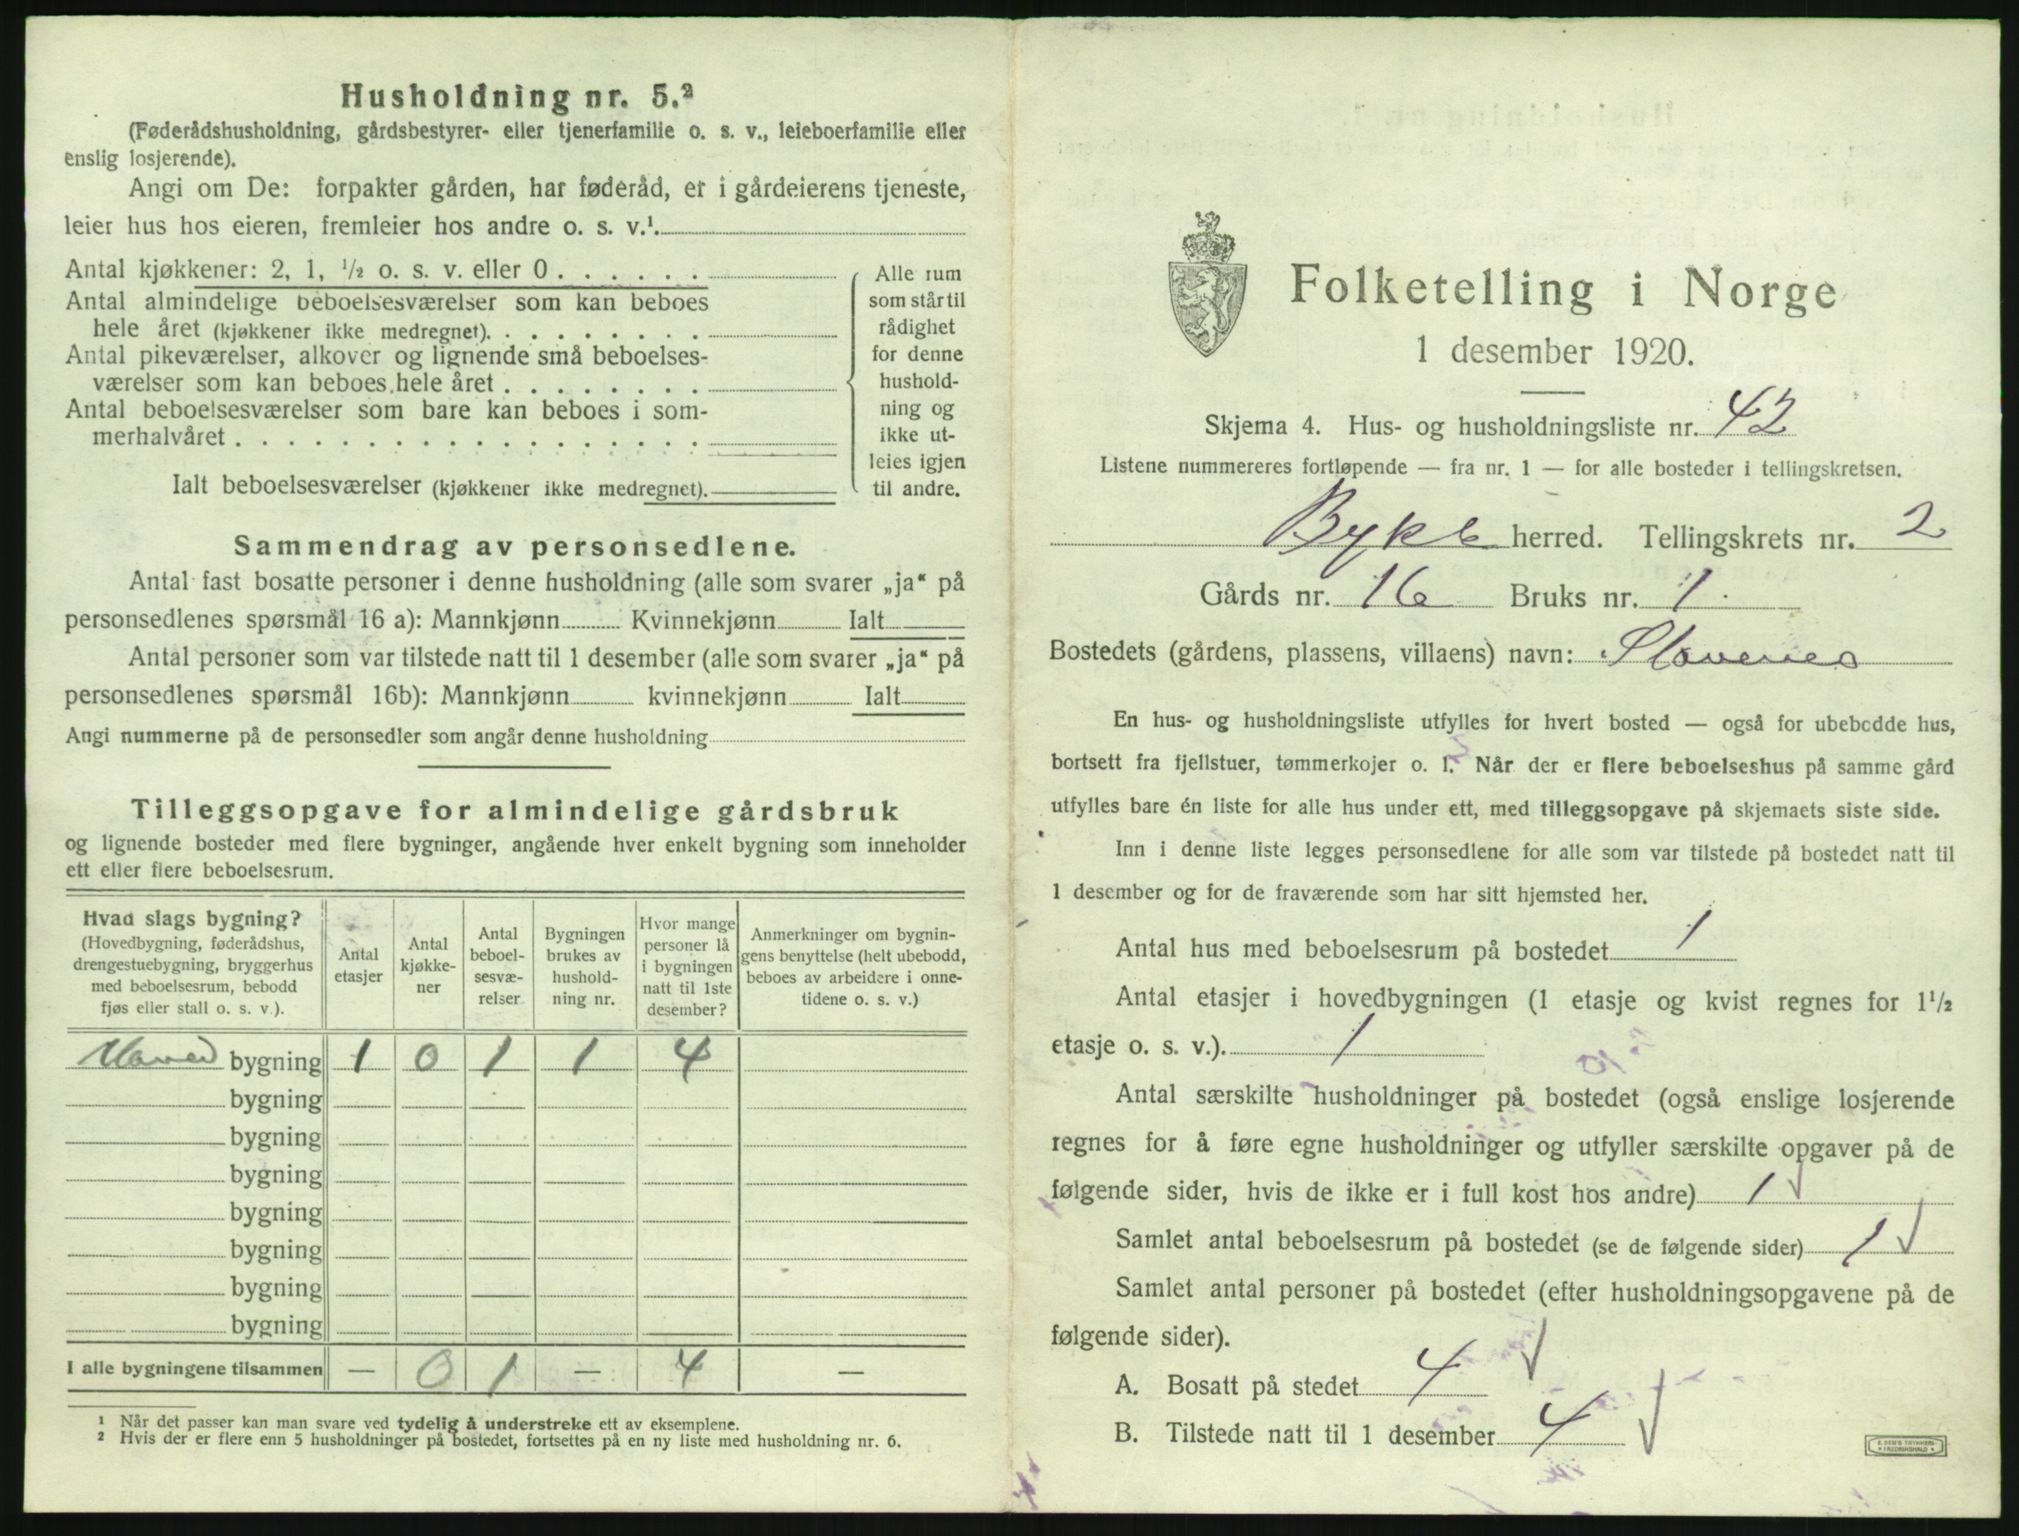 Husholdning nr. 5.²
(Føderådshusholdning, gårdsbestyrer- eller tjenerfamilie o. s. v., leieboerfamilie eller
enslig losjerende).
Angi om De: forpakter gården, har føderåd, er i gårdeierens tjeneste,
leier hus hos eieren, fremleier hos andre o. s. v.¹.
Antal kjøkkener: 2, 1, ½ o. s. v. eller 0 . . . . . .
Antal almindelige beboelsesværelser som kan beboes
hele året (kjøkkener ikke medregnet). . . . . . . . .
Antal pikeværelser, alkover og lignende små beboelses-
værelser som kan beboes hele året . . . . . . . .
Antal beboelsesværelser som bare kan beboes i som-
merhalvåret . . . . . . . . . . . . . . . . . .
Ialt beboelsesværelser (kjøkkener ikke medregnet).
Alle rum
som står til
rådighet
for denne
hushold-
ning og
ikke ut-
leies igjen
til andre.
Sammendrag av personsedlene.
Antal fast bosatte personer i denne husholdning (alle som svarer „ja“ på
personsedlenes spørsmål 16 a): Mannkjønn Kvinnekjønn Ialt
Antal personer som var tilstede natt til 1 desember (alle som svarer „ja“ på
personsedlenes spørsmål 16b): Mannkjønn kvinnekjønn Ialt
Angi nummerne på de personsedler som angår denne husholdning
Tilleggsopgave for almindelige gårdsbruk
og lignende bosteder med flere bygninger, angående hver enkelt bygning som inneholder
ett eller flere beboelsesrum.
Hvad slags bygning?
(Hovedbygning, føderådshus,
drengestuebygning, bryggerhus
med beboelsesrum, bebodd
fjøs eller stall o. s. v.).
Antal
etasjer
Antal
kjøkke-
ner
Antal
beboel-
sesvæ-
relser
Bygningen
brukes av
hushold-
ning nr.
Hvor mange
personer lå
i bygningen
natt til 1ste
desember?
Anmerkninger om bygnin-
gens benyttelse (helt ubebodd,
beboes av arbeidere i onne-
tidene o. s. v.)
Hoved bygning 1 0 1 1 4
bygning
bygning
bygning
bygning
bygning
bygning
bygning
I alle bygningene tilsammen — 0 1 — 4 —
¹ Når det passer kan man svare ved tydelig å understreke ett av eksemplene.
² Hvis der er flere enn 5 husholdninger på bostedet, fortsettes på en ny liste med husholdning nr. 6.
Folketelling i Norge
1 desember 1920.
Skjema 4. Hus- og husholdningsliste nr. 42
Listene nummereres fortløpende — fra nr. 1 — for alle bosteder i tellingskretsen.
Bykle herred. Tellingskrets nr. 2
Gårds nr. 16 Bruks nr. 1.
Bostedets (gårdens, plassens, villaens) navn: Hovenes
En hus- og husholdningsliste utfylles for hvert bosted — også for ubebodde hus,
bortsett fra fjellstuer, tømmerkojer o. l. Når der er flere beboelseshus på samme gård
utfylles bare én liste for alle hus under ett, med tilleggsopgave på skjemaets siste side.
Inn i denne liste legges personsedlene for alle som var tilstede på bostedet natt til
1 desember og for de fraværende som har sitt hjemsted her.
Antal hus med beboelsesrum på bostedet 1
Antal etasjer i hovedbygningen (1 etasje og kvist regnes for 1½
etasje o. s. v.). 1
Antal særskilte husholdninger på bostedet (også enslige losjerende
regnes for å føre egne husholdninger og utfyller særskilte opgaver på de
følgende sider, hvis de ikke er i full kost hos andre) 1 √
Samlet antal beboelsesrum på bostedet (se de følgende sider) 1 √
Samlet antal personer på bostedet (efter husholdningsopgavene på de
følgende sider).
A. Bosatt på stedet 4 √
B. Tilstede natt til 1 desember 4 √